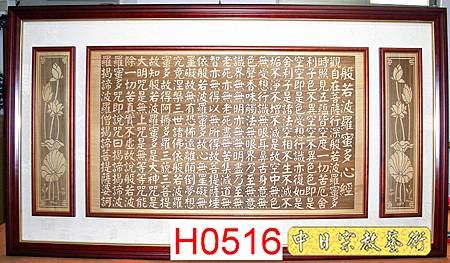 般若波羅蜜多心經
觀自在菩薩行深般若波羅蜜多
時照見五蘊皆空度一切苦厄舍
利子色不異空空不異色色即是
空空即是色受想行識亦復如是
舍利子是諸法空相不生不滅不
垢不淨不增不減是故空中無色
無受想行識無眼耳鼻舌身意無
色聲香味觸法無眼界乃至無意
識界無無明亦無無明盡乃至無
老死亦無老死盡無苦集滅道無
智亦無得以無所得故菩提薩埵
依般若波羅蜜多故心無罣礙無
罣礙故無有恐怖遠離顛倒夢想
究竟涅槃三世諸佛依般若波羅
蜜多故得阿耨多羅三藐三菩提
故知般若波羅蜜多是大神咒是
大明咒是無上咒是無等等咒能
除一切苦真實不虛故說般若波
羅蜜多咒即說咒曰揭諦揭諦波
羅揭諦波羅僧揭諦菩提薩婆訶
H0516
中日宗教藝術